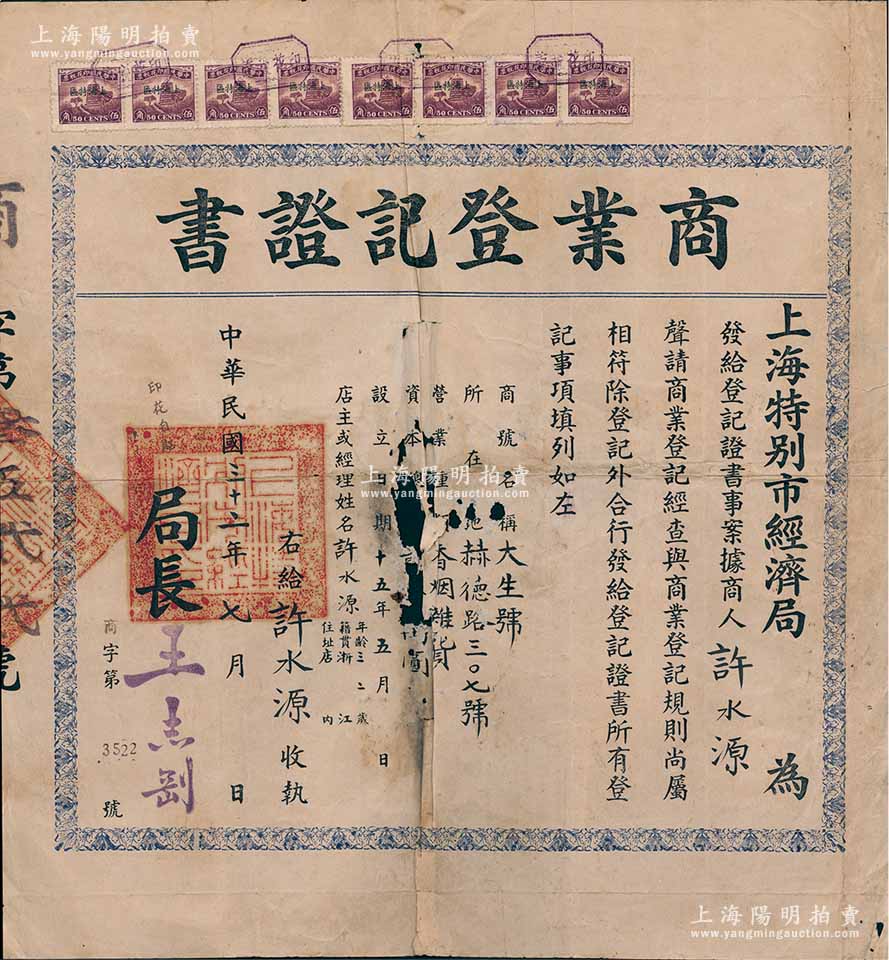 上海陽明拍賣
www.yangmingauction.com
50 CENTS
50 CENTS
50 CENTS
50 CENTS
50 CENTS
50 CENTS
50 CENTS
50 CENTS
商業登記證書
上海特別市經濟局 為
發給登記證書事案據商人 許水源
聲請商業登記經查與商業登記規則尚屬
相符除登記外合行發給登記證書所有登
記事項填列如左
商號名稱 大生號
所在地 赫德路三〇七號
營業種 香烟雜貨
資本
設立日期 十五年五月 日
店主或經理姓名 許水源
年齡 三二歲
籍貫 浙江
住址 店內
右給 許水源 收執
中華民國三十二年七月 日
印花自貼
局長 王志剛
商字第 3522 號
商字第叁伍弍弍號
上海陽明拍賣
www.yangmingauction.com
上海陽明拍賣
www.yangmingauction.com